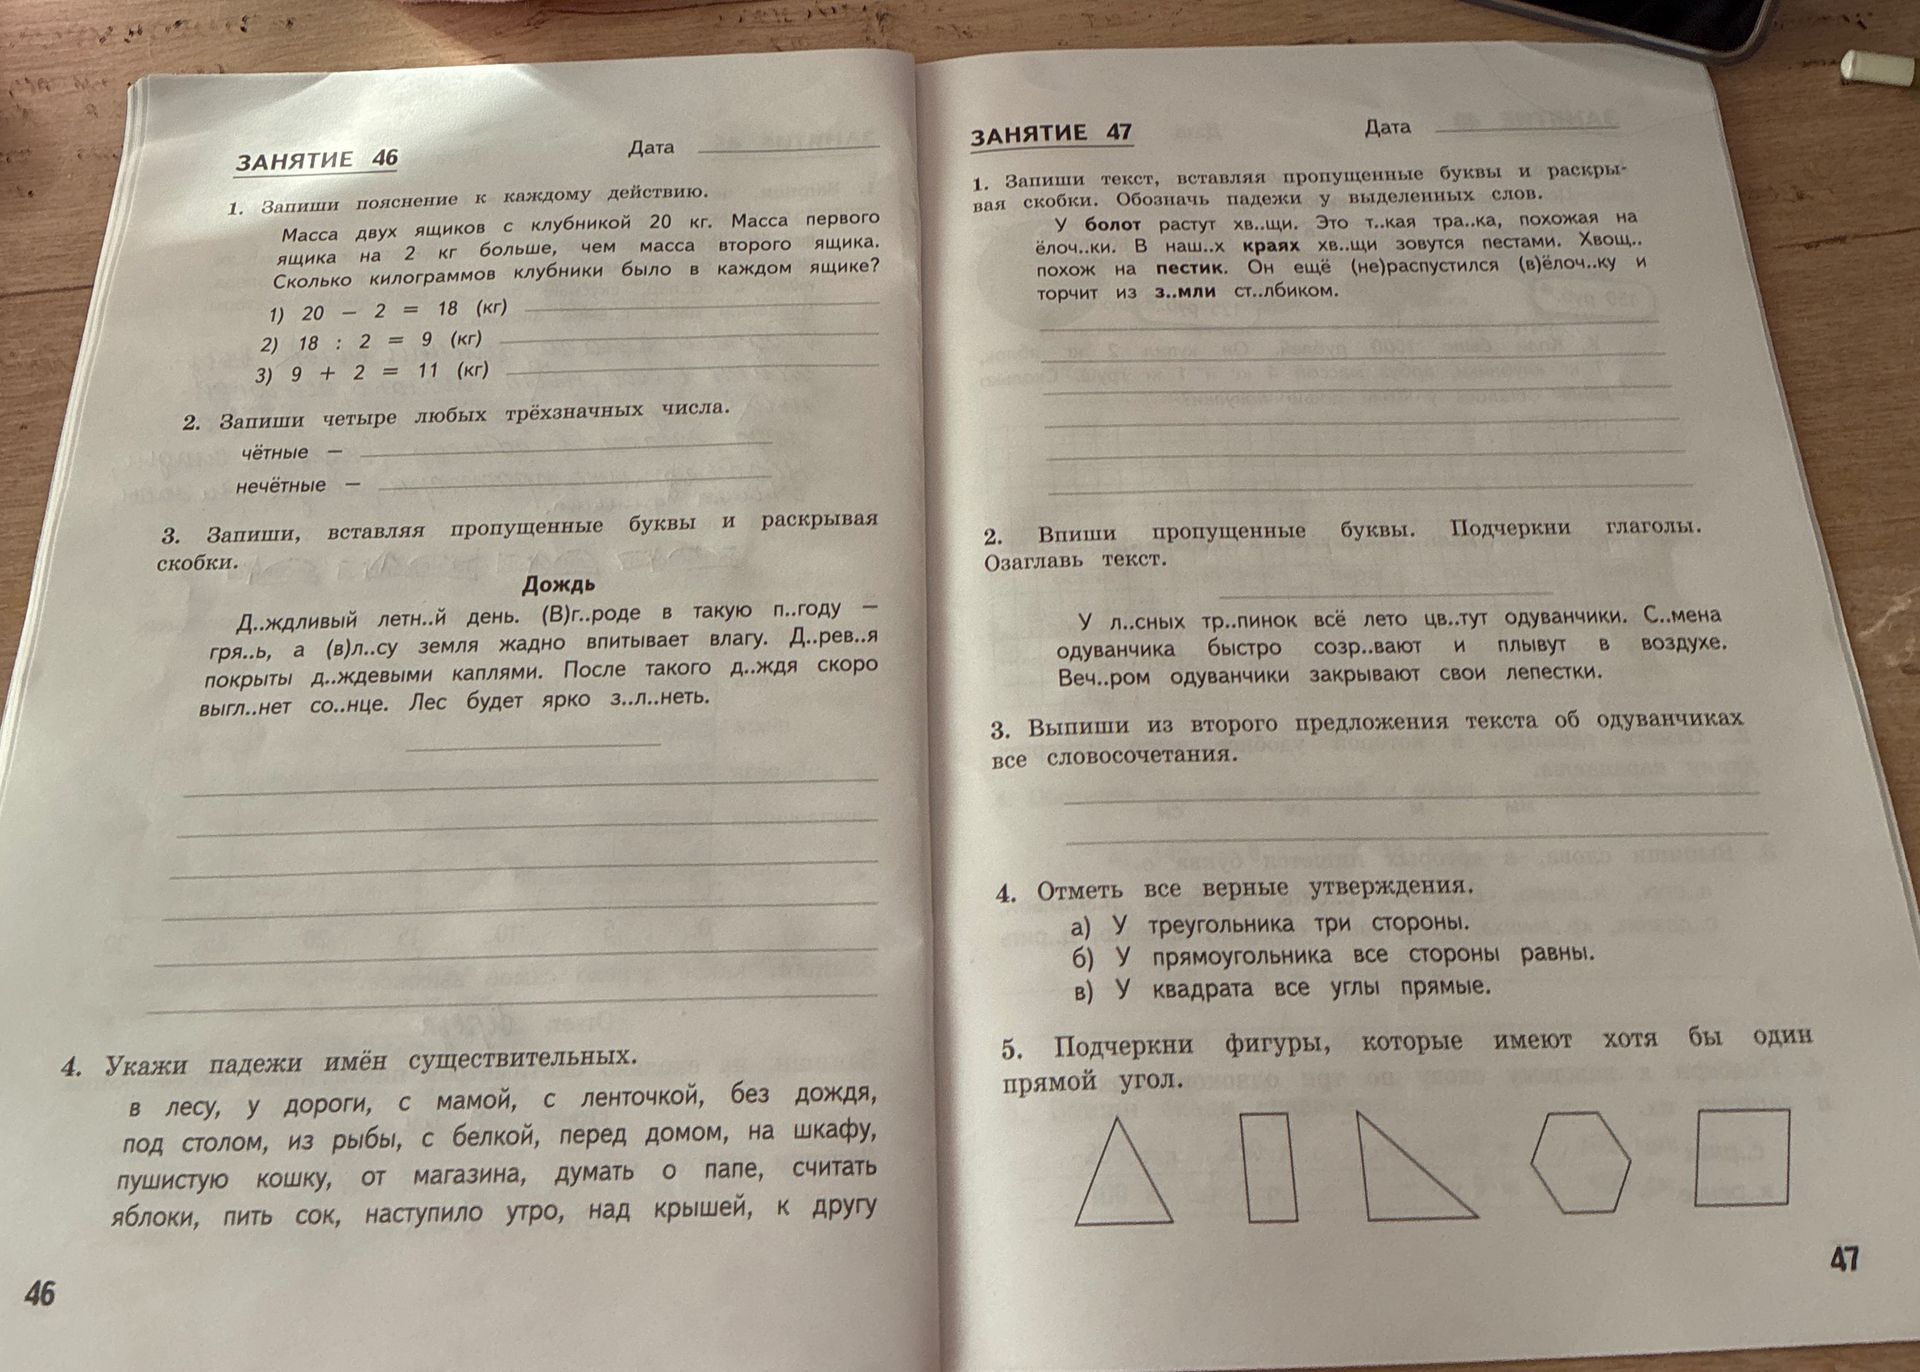 ЗАНЯТИЕ 46
Дата
1. Запиши пояснение к каждому действию.
Масса двух ящиков с клубникой 20 кг. Масса первого
ящика на 2 кг больше, чем масса второго ящика.
Сколько килограммов клубники было в каждом ящике?
1) 20 – 2 = 18 (кг)
2) 18 : 2 = 9 (кг)
3) 9 + 2 = 11 (кг)
2. Запиши четыре любых трёхзначных числа.
чётные –
нечётные –
3. Запиши, вставляя пропущенные буквы и раскрывая
скобки.
Дождь
Д..ждливый летн..й день. (В)г..роде в такую п..году –
гря..ь, а (в)л..су земля жадно впитывает влагу. Д..рев..я
покрыты д..ждевыми каплями. После такого д..ждя скоро
выгл..нет со..нце. Лес будет ярко з..л..неть.
4. Укажи падежи имён существительных.
в лесу, у дороги, с мамой, с ленточкой, без дождя,
под столом, из рыбы, с белкой, перед домом, на шкафу,
пушистую кошку, от магазина, думать о папе, считать
яблоки, пить сок, наступило утро, над крышей, к другу
46
ЗАНЯТИЕ 47
Дата
1. Запиши текст, вставляя пропущенные буквы и раскры-
вая скобки. Обозначь падежи у выделенных слов.
У болот растут хв..щи. Это т..кая тра..ка, похожая на
ёлоч..ки. В наш..х краях хв..щи зовутся пестами. Хвощ..
похож на пестик. Он ещё (не)распустился (в)ёлоч..ку и
торчит из з..мли ст..лбиком.
2. Впиши пропущенные буквы. Подчеркни глаголы.
Озаглавь текст.
У л..сных тр..пинок всё лето цв..тут одуванчики. С..мена
одуванчика быстро созр..вают и плывут в воздухе.
Веч..ром одуванчики закрывают свои лепестки.
3. Выпиши из второго предложения текста об одуванчиках
все словосочетания.
4. Отметь все верные утверждения.
а) У треугольника три стороны.
б) У прямоугольника все стороны равны.
в) У квадрата все углы прямые.
5. Подчеркни фигуры, которые имеют хотя бы один
прямой угол.
47